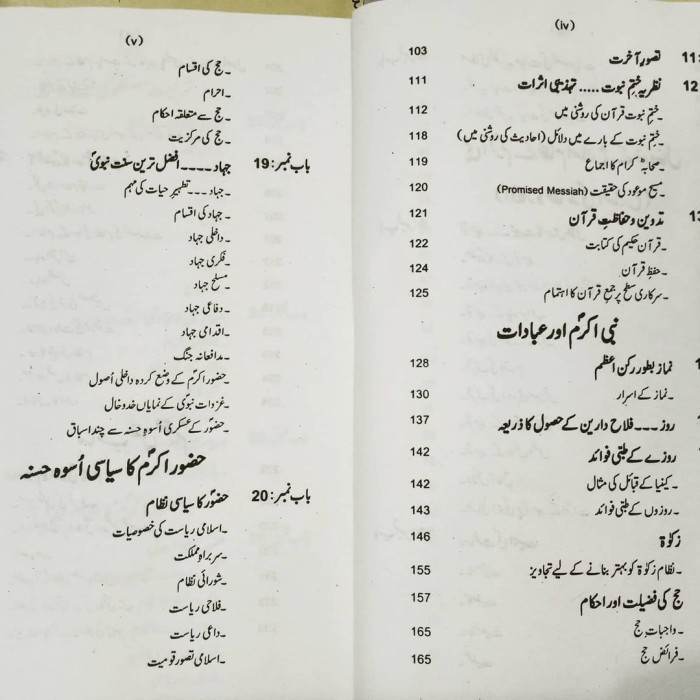 (iv)
11: تصورِ آخرت 103
12 نظریہ ختمِ نبوت ..... تہذیبی اثرات 111
۔ختم نبوت قرآن کی روشنی میں 112
۔ختم نبوت کے بارے میں دلائل (احادیث کی روشنی میں) 118
۔صحابہ کرام کا اجماع 119
۔مسیح موعود کی حقیقت (Promised Messiah) 120
13 تدوین و حفاظتِ قرآن 121
۔قرآن حکیم کی کتابت 122
۔حفظِ قرآن 124
۔سرکاری سطح پر جمع قرآن کا اہتمام 125
نبی اکرمؐ اور عبادات
1 نماز بطور رکن اعظم 128
۔نماز کے اسرار 130
روزہ ۔۔۔ فلاح دارین کے حصول کا ذریعہ 137
روزے کے طبّی فوائد 142
۔کینیا کے قبائل کی مثال 142
۔روزوں کے طبّی فوائد 143
زکوٰۃ 146
۔نظام زکوٰۃ کو بہتر بنانے کے لیے تجاویز 155
حج کی فضیلت اور احکام 157
۔واجباتِ حج 165
۔فرائض حج 165
(v)
۔حج کی اقسام
۔احرام
۔حج سے متعلقہ احکام
۔حج کی مرکزیت
باب نمبر: 19 جہاد ۔۔۔۔ افضل ترین سنت نبویؐ
۔جہاد ۔۔۔ تطہیرِ حیات کی مہم
۔جہاد کی اقسام
۔داخلی جہاد
۔فکری جہاد
۔مسلح جہاد
۔دفاعی جہاد
۔اقدامی جہاد
۔مدافعانہ جنگ
۔حضور اکرمؐ کے وضع کردہ داخلی اُصول
۔غزوات نبویؐ کے نمایاں خدوخال
۔حضورؐ کے عسکری اُسوہ حسنہ سے چند اسباق
حضور اکرمؐ کا سیاسی اُسوہ حسنہ
باب نمبر: 20 حضورؐ کا سیاسی نظام
۔اسلامی ریاست کی خصوصیات
۔سربراہِ مملکت
۔شورائی نظام
۔فلاحی ریاست
۔داعی ریاست
۔اسلامی تصور قومیت